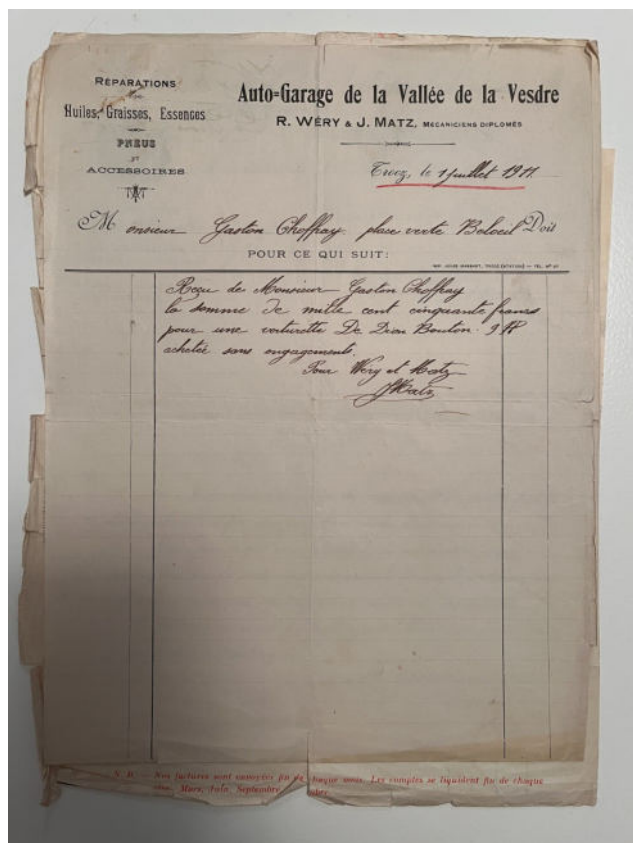 RÉPARATIONS
Huiles, Graisses, Essences
PNEUS
ET
ACCESSOIRES
Auto=Garage de la Vallée de la Vesdre
R. WÉRY & J. MATZ, MÉCANICIENS DIPLOMÉS
Trooz, le 1 juillet 1911.
Monsieur Gaston Choffray place verte Beloeil Doit
POUR CE QUI SUIT:
Reçu de Monsieur Gaston Choffray
la somme de mille cent cinquante francs
pour une voiturette De Dion Bouton 9 HP
achetée sans engagements.
Pour Wéry et Matz
JMatz
N. B. — Nos factures sont
fin de chaque mois. Les comptes se liquident fin de chaque
Mars, Juin, Septembre,